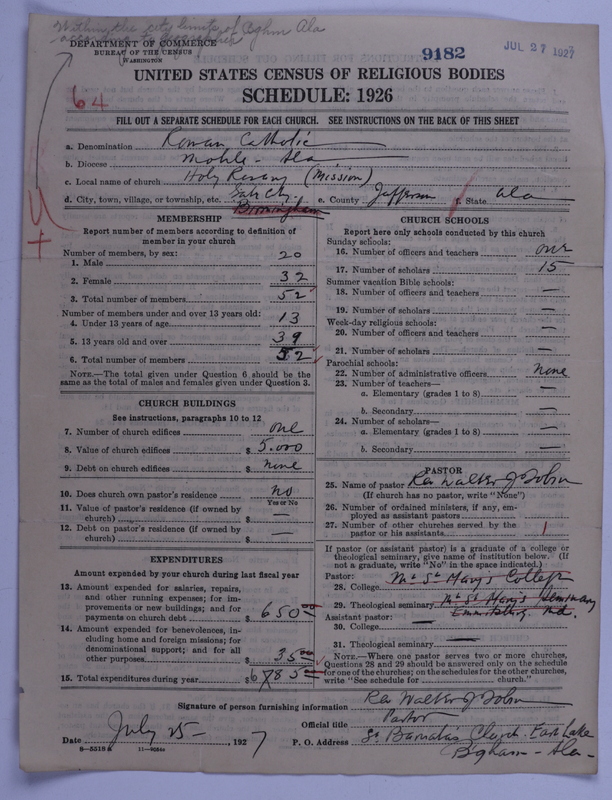 Within the city limits of Bghm Ala
DEPARTMENT OF COMMERCE
BUREAU OF THE CENSUS
WASHINGTON
9182
JUL 27 1927
64
UNITED STATES CENSUS OF RELIGIOUS BODIES
SCHEDULE: 1926
FILL OUT A SEPARATE SCHEDULE FOR EACH CHURCH. SEE INSTRUCTIONS ON THE BACK OF THIS SHEET
a. Denomination Roman Catholic
b. Diocese Mobile - Ala
c. Local name of church Holy Rosary (Mission)
d. City, town, village, or township, etc. Gate City Birmingham e. County Jefferson f. State Ala
MEMBERSHIP
Report number of members according to definition of
member in your church
Number of members, by sex:
1. Male 20
2. Female 32
3. Total number of members 52
Number of members under and over 13 years old:
4. Under 13 years of age 13
5. 13 years old and over 39
6. Total number of members 52
NOTE.—The total given under Question 6 should be the
same as the total of males and females given under Question 3.
CHURCH BUILDINGS
See instructions, paragraphs 10 to 12
7. Number of church edifices one
8. Value of church edifices $ 5.000
9. Debt on church edifices $ none
10. Does church own pastor's residence no
Yes or No
11. Value of pastor's residence (if owned by
church) $ —
12. Debt on pastor's residence (if owned by
church) $ —
EXPENDITURES
Amount expended by your church during last fiscal year
13. Amount expended for salaries, repairs,
and other running expenses; for im-
provements or new buildings; and for
payments on church debt $ 650 00
14. Amount expended for benevolences, in-
cluding home and foreign missions; for
denominational support; and for all
other purposes $ 35 00
15. Total expenditures during year $ 685 00
CHURCH SCHOOLS
Report here only schools conducted by this church
Sunday schools:
16. Number of officers and teachers one
17. Number of scholars 15
Summer vacation Bible schools:
18. Number of officers and teachers —
19. Number of scholars —
Week-day religious schools:
20. Number of officers and teachers —
21. Number of scholars —
Parochial schools:
22. Number of administrative officers none
23. Number of teachers—
a. Elementary (grades 1 to 8) —
b. Secondary —
24. Number of scholars—
a. Elementary (grades 1 to 8) —
b. Secondary —
PASTOR
25. Name of pastor Rev Walter J Tobin
(If church has no pastor, write "None")
26. Number of ordained ministers, if any, em-
ployed as assistant pastors
27. Number of other churches served by the
pastor or his assistants 1
If pastor (or assistant pastor) is a graduate of a college or
theological seminary, give name of institution below. (If
not a graduate, write "No" in the space indicated.)
Pastor:
28. College Mt St Mary's College
29. Theological seminary Mt St Mary's Seminary
Emmitsburg Md.
Assistant pastor: —
30. College
31. Theological seminary —
NOTE.—Where one pastor serves two or more churches,
Questions 28 and 29 should be answered only on the schedule
for one of the churches; on the schedules for the other churches,
write "See schedule for church."
Signature of person furnishing information Rev Walter J Tobin
Official title Pastor
Date July 25 —, 1927
P. O. Address St Barnabas Church - East Lake
Bgham - Ala -
8—5518 a 11—9584